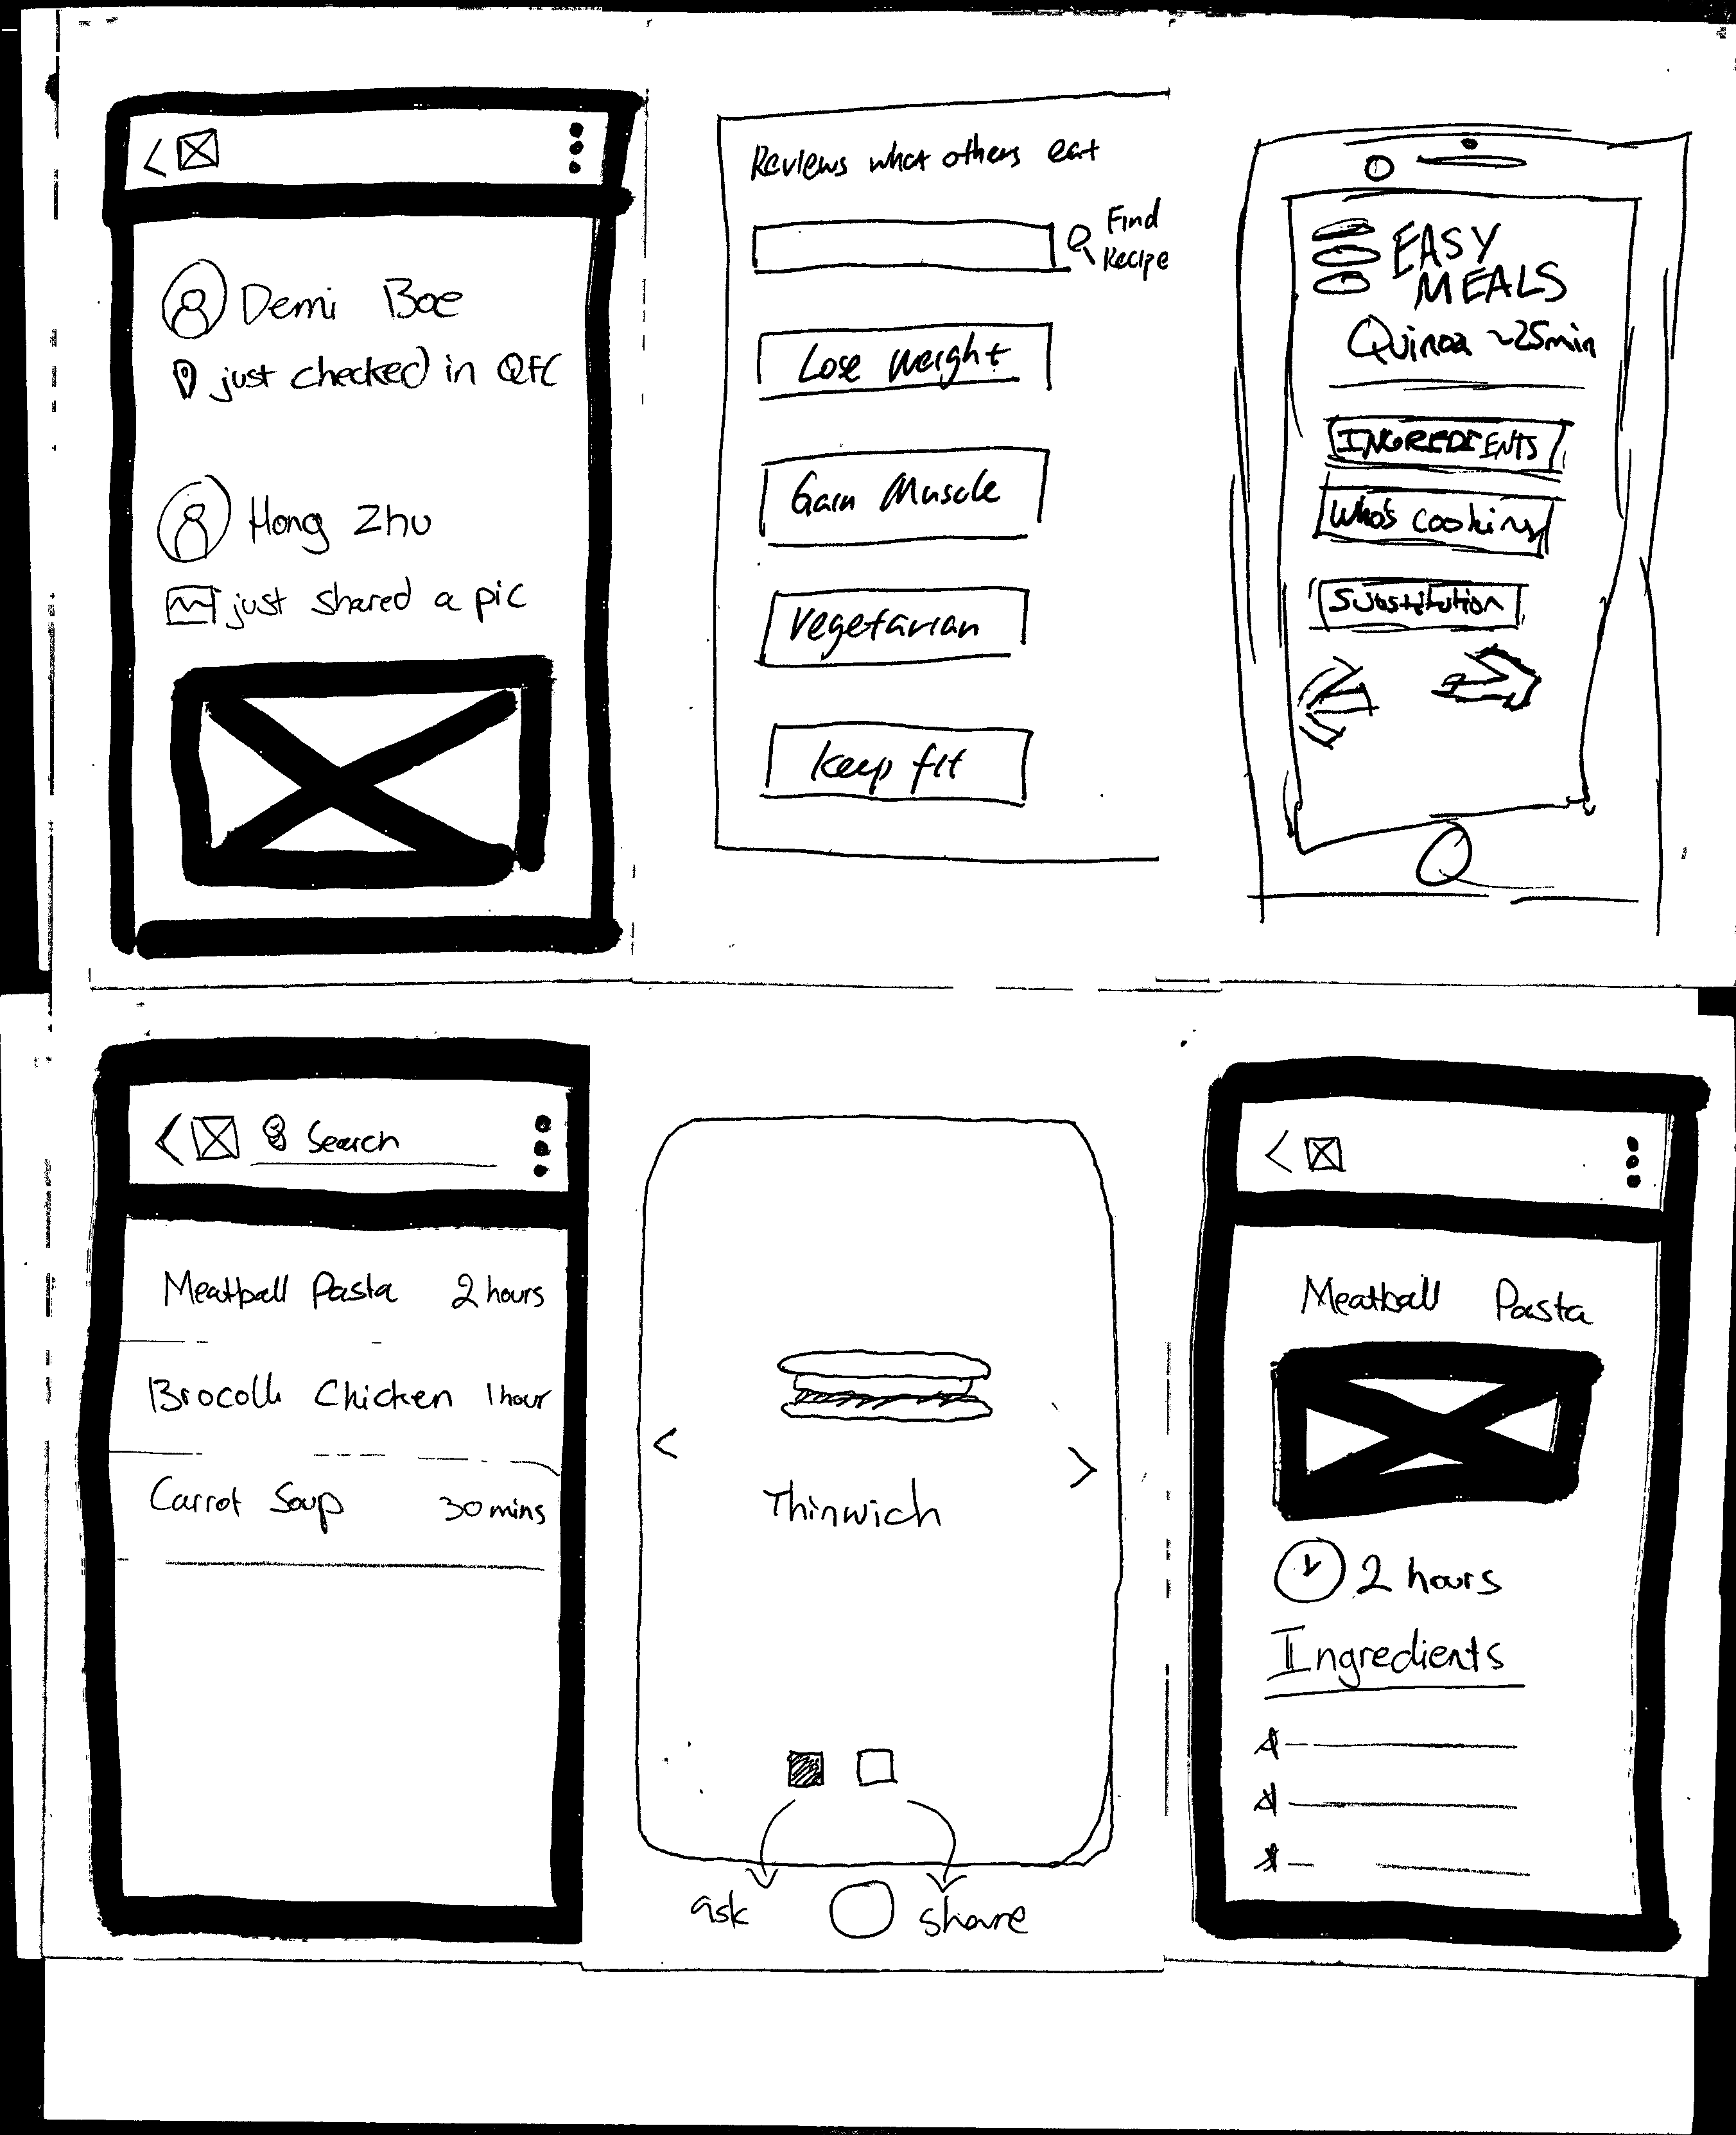 Demi Boe
just checked in QFC
Hong Zhu
just shared a pic
Reviews what others eat
Find
Recipe
Lose Weight
Gain Muscle
Vegetarian
keep fit
EASY
MEALS
Quinoa ~25min
INGREDIENTS
Who's cooking
Substitution
Search
Meatball Pasta 2 hours
Brocolli Chicken 1 hour
Carrot Soup 30 mins
Thinwich
ask
share
Meatball Pasta
2 hours
Ingredients